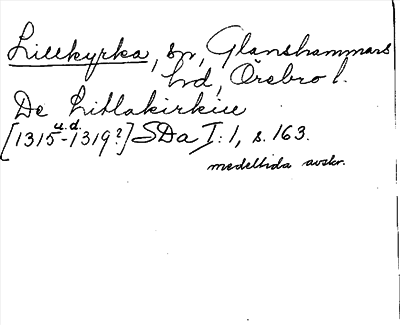 Lillkyrka, sn, Glanshammars
hd, Örebro l.
De Litlakirkiu
u.d.
[1315-1319?] SDa I:1, s. 163.
medeltida avskr.